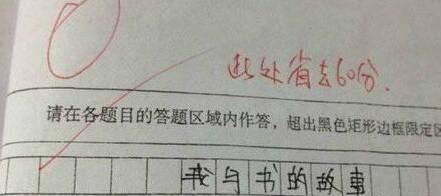 此处省去60分.
请在各题目的答题区域内作答，超出黑色矩形边框限定区
我与书的故事